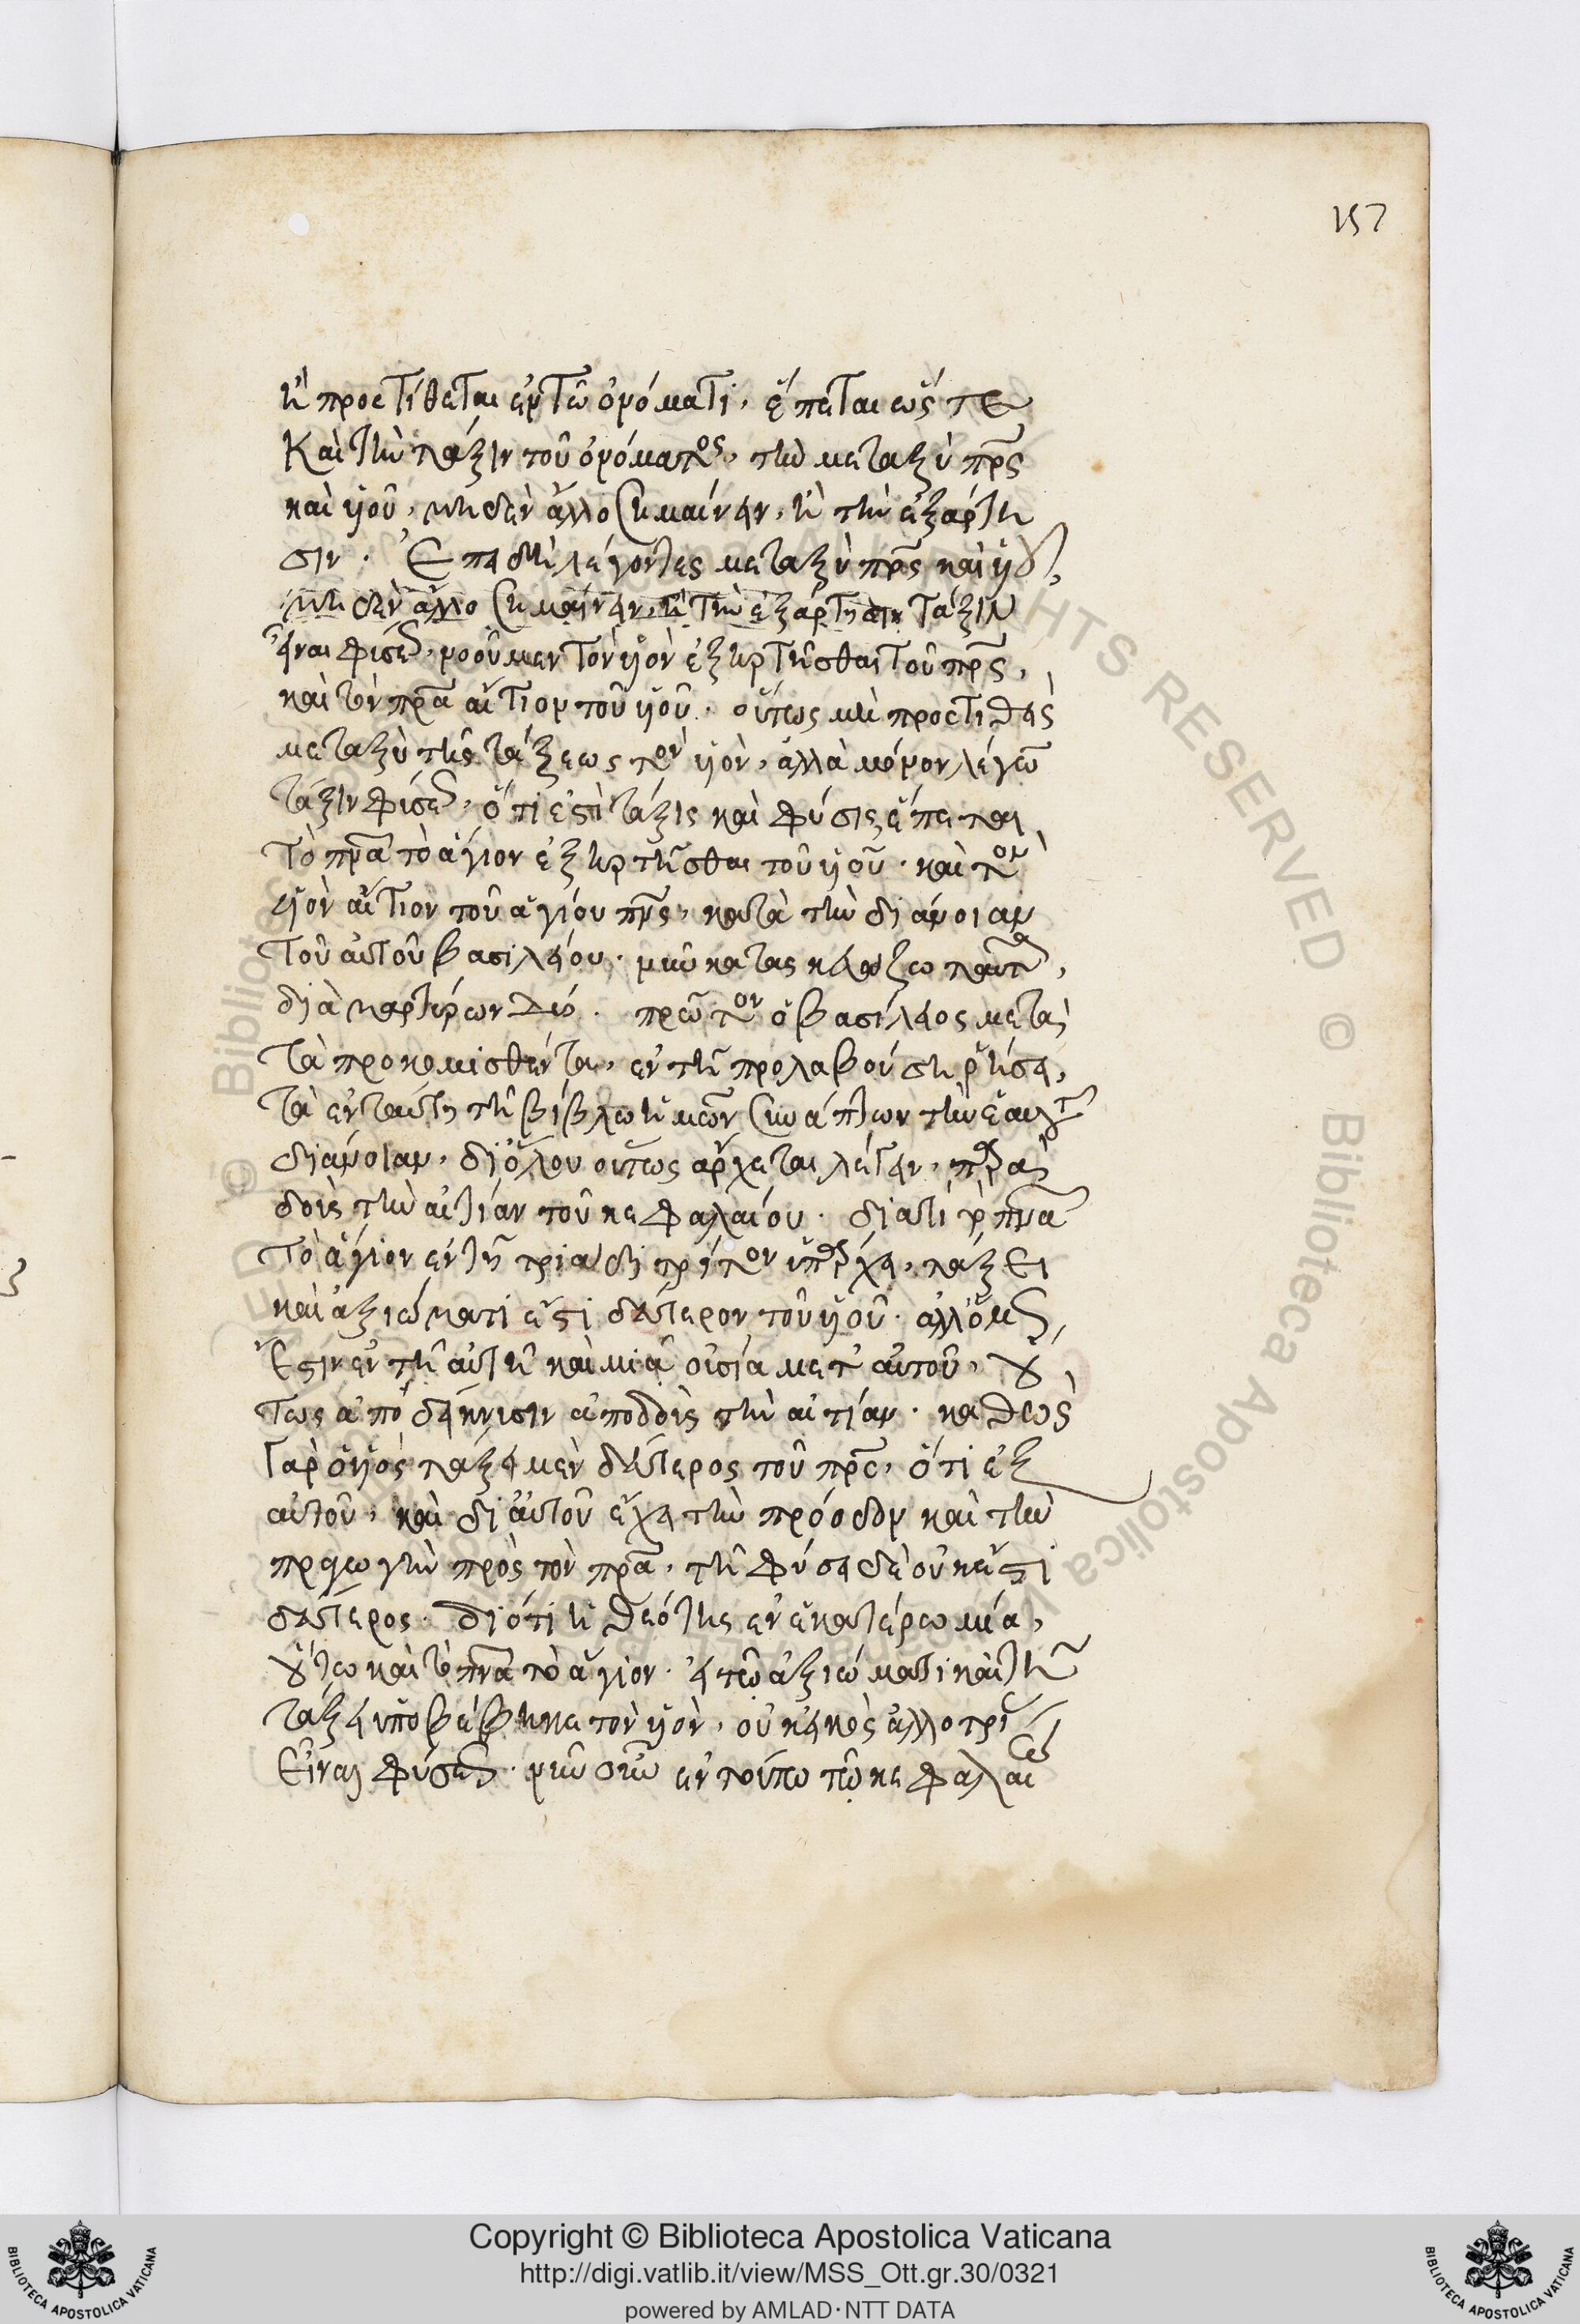 157
ἢ προστίθεται ἐν τῷ ὀνόματι, ἕπεται ὥς τε
καὶ τὴν τάξιν τοῦ ὀνόματος, τὴν μεταξὺ πρς
καὶ υἱοῦ, μηδὲν ἄλλο σημαίνειν, ἢ τὴν ἐξάρτη
σιν. Ἐπειδὴ λέγοντες μεταξὺ πρς καὶ υἱοῦ,
μηδὲν ἄλλο σημαίνειν, ἢ τὴν ἐξάρτησιν τάξιν
εἶναι φύσεως, νοοῦμεν τὸν υἱὸν ἐξηρτῆσθαι τοῦ πρς,
καὶ τὸν πρα αἴτιον τοῦ υἱοῦ. οὕτως μὴ προστιθεὶς
μεταξὺ τῆς τάξεως τὸν υἱὸν, ἀλλὰ μόνον λέγων
τάξιν φύσεως, ὅτι ἐστὶ τάξις καὶ φύσις, ἕπεται
τὸ πνα τὸ ἅγιον ἐξηρτῆσθαι τοῦ υἱοῦ. καὶ τὸν
υἱὸν αἴτιον τοῦ ἁγίου πνς, κατὰ τὴν διάνοιαν
τοῦ αὐτοῦ βασιλείου. νῦν κατασκευάζω ταῦτα,
διὰ μαρτύρων δύο. πρῶτον ὁ βασίλειος μετὰ
τὰ προκομισθέντα, ἐν τῇ προλαβούσῃ ῥήσει,
τὰ ἐν ταύτῃ τῇ βίβλῳ ἡμῶν συνάπτων τὴν ἑαυτοῦ
διάνοιαν, δι ὅλου οὕτως ἄρχεται λέγειν, παρα
δοὺς τὴν αἰτίαν τοῦ κεφαλαίου. διατί τὸ πνα
τὸ ἅγιον ἐν τῇ τριάδι τρίτον ὑπάρχει, τάξει
καὶ ἀξιώματι ἔστι δεύτερον τοῦ υἱοῦ. ἀλλ ὅμως,
ἔστιν ἐν τῇ αὐτῇ καὶ μιᾷ οὐσία μετ αὐτοῦ, οὕ
τως ἀπόδείκνυσιν ἀποδοὺς τὴν αἰτίαν. καθὼς
γὰρ ὁ υἱὸς τάξει μὲν δεύτερος τοῦ πρς, ὅτι ἐξ
αὐτοῦ, καὶ δι αὐτοῦ ἔχει τὴν πρόοδον καὶ τὴν
προαγωγὴν πρὸς τὸν πρα, τῇ φύσει δὲ οὐκ ἔστι
δεύτερος. διότι ἡ θεότης ἐν ἑκατέρῳ μία,
οὕτω καὶ τὸ πνα τὸ ἅγιον. εἰ τῷ ἀξιώματι καὶ τῇ
τάξει ὑποβέβηκε τὸν υἱὸν, οὐκ εἰκὸς ἀλλοτρί
εἶναι φύσεως. νῦν οὖν ἐν τούτῳ τῷ κεφαλαίῳ
Copyright © Biblioteca Apostolica Vaticana
http://digi.vatlib.it/view/MSS_Ott.gr.30/0321
powered by AMLAD·NTT DATA